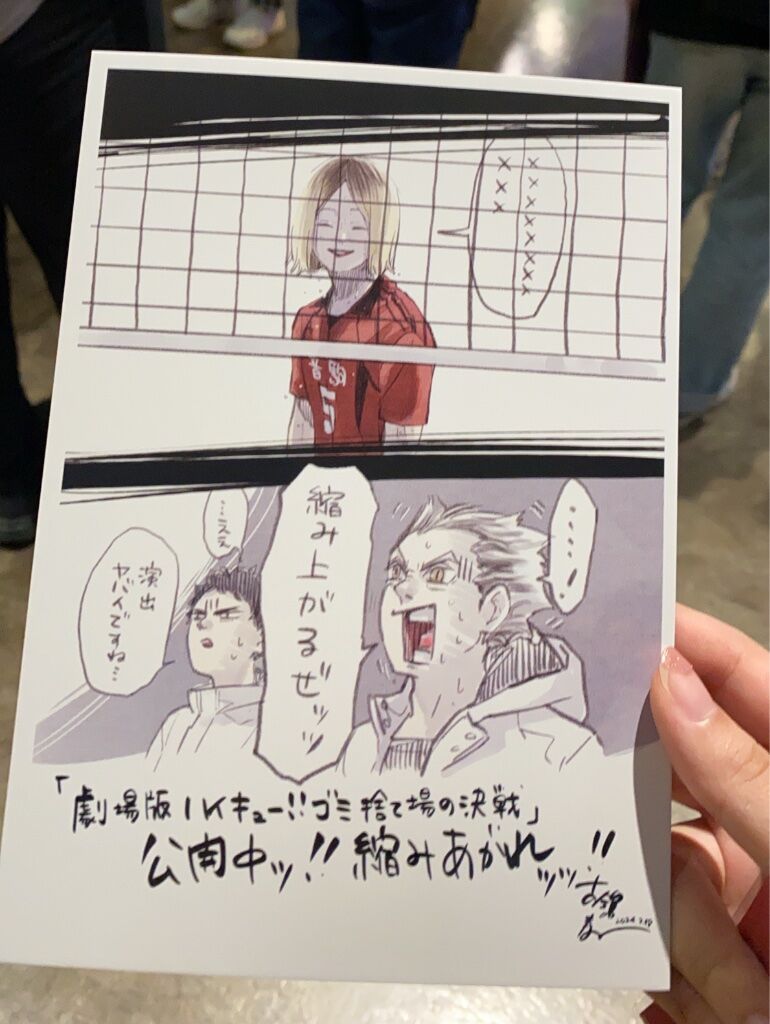 ×××××××××
×××
音駒
5
……!
縮み上がるぜッッ
…ええ
演出
ヤバイですね…
「劇場版ハイキュー!!ゴミ捨て場の決戦」
公開中ッ!! 縮みあがれッッ!!